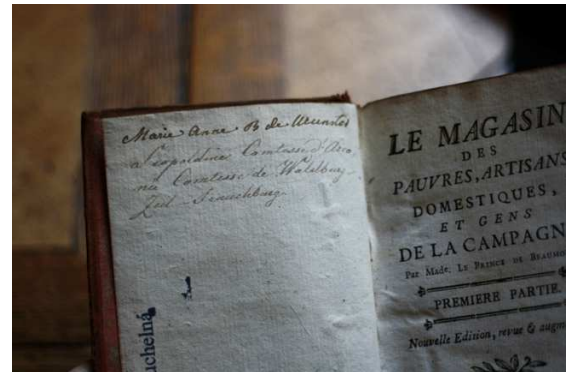 Marie Anne B de
a Leopoldine Comtesse d'Arco
née Comtesse de Waldburg
Zeil
uchelná
LE MAGASIN
DES
PAUVRES, ARTISANS
DOMESTIQUES,
ET GENS
DE LA CAMPAGN
Par Made. LE PRINCE DE BEAUMO
PREMIERE PARTIE.
Nouvelle Edition, revue & augm